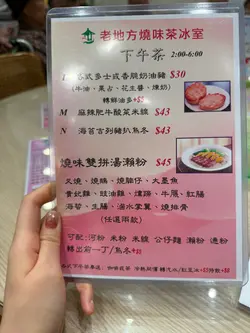 老地方燒味茶冰室
下午茶 2:00-6:00
L 各式多士或香脆奶油豬 $30
(牛油，果占，花生醬，煉奶)
轉鮮油多+$3
M 麻辣肥牛酸菜米線 $43
N 海苔古列豬扒烏冬 $43
燒味雙拼湯瀨粉 $45
叉燒，燒鴨，燒腩仔，大墨魚
貴妃雞，豉油雞，燻蹄，牛𦟌，紅腸
海蜇，生腸，滷水掌翼，燒排骨
(任選兩款)
可配:河粉 米粉 米線 公仔麵 瀨粉 通粉
轉出前一丁/烏冬+$3